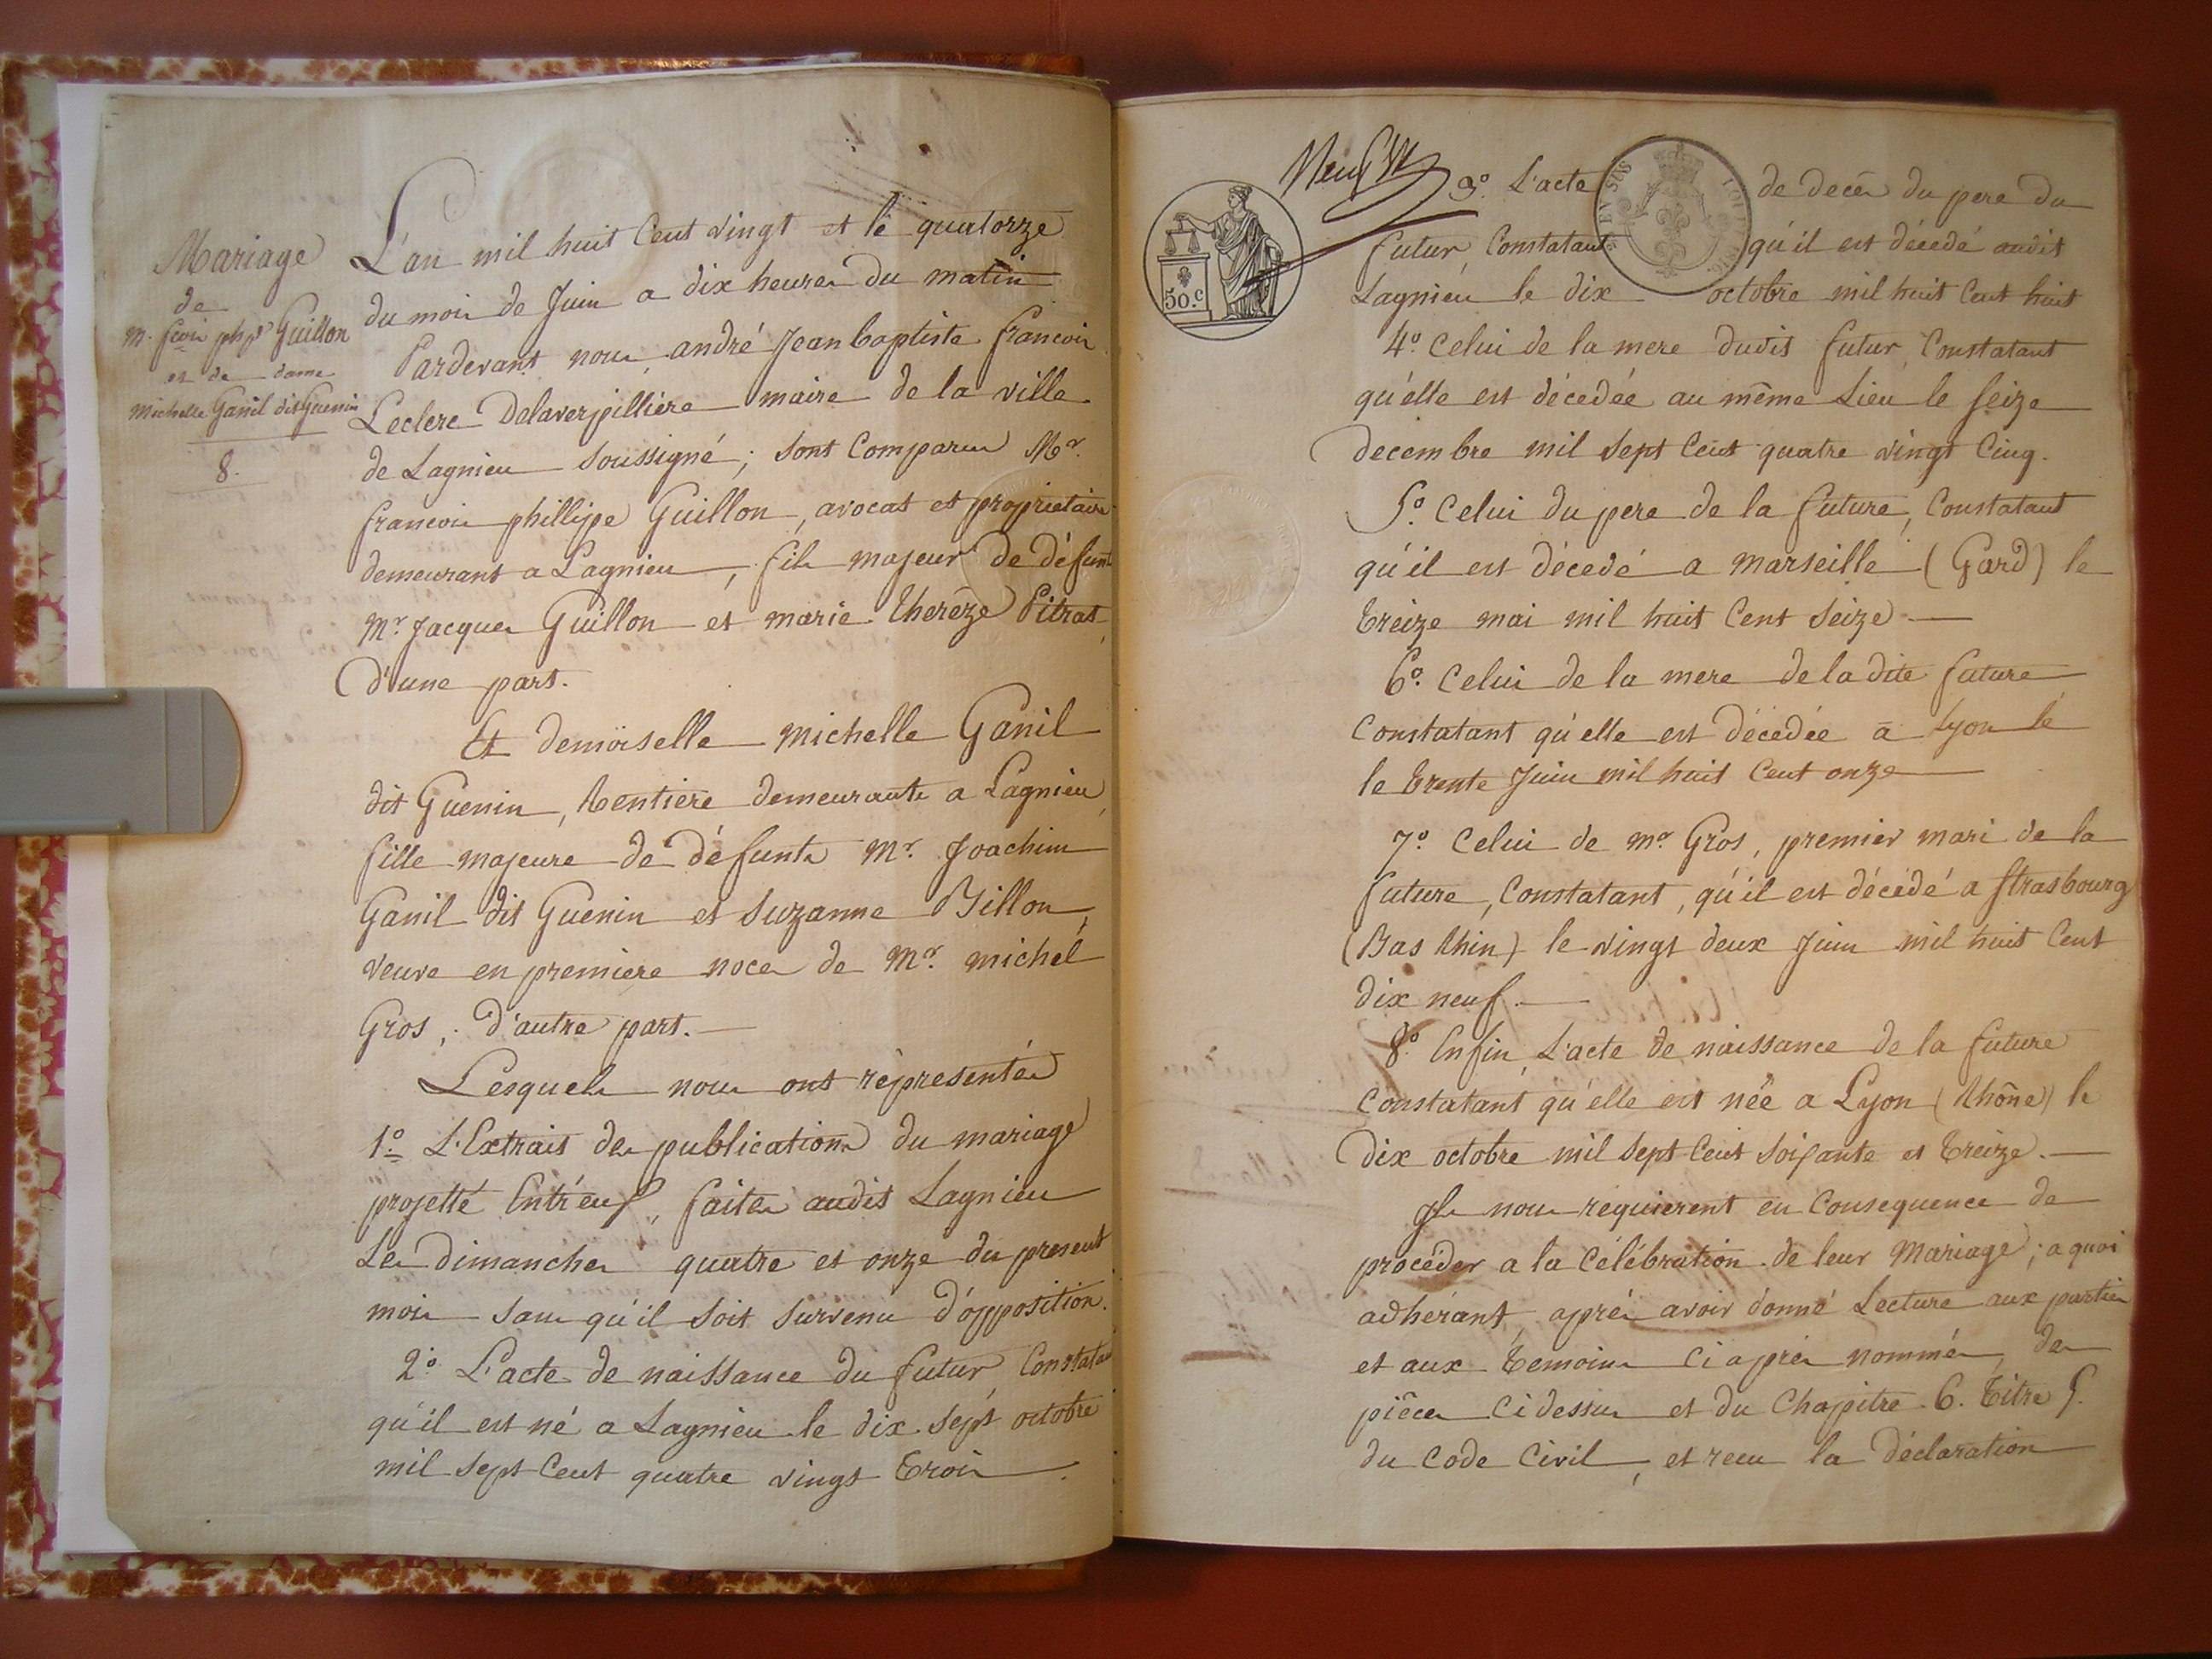 Mariage
de
M. fcois phpe Guillon
et de dame
Michelle Ganil dit Guenin
8.
L'an mil huit Cent vingt et le quatorze
du mois de Juin a dix heures du matin
Pardevant nous andré Jean baptiste francois
Leclerc Delaverpilliere maire de la ville
de Lagnieu soussigné; sont Comparus Mr.
francois phillipe Guillon, avocat et proprietaire
demeurant a Lagnieu, fils majeur de défunts
Mr. Jacques Guillon et marie Therèze Pitrat,
d'une part.
Et demoiselle Michelle Ganil
dit Guenin, Rentiere demeurante a Lagnieu,
fille majeure de défunts Mr. Joachim
Ganil dit Guenin et Suzanne Billon,
veuve en premiere noces de Mr. michel
Gros, d'autre part.
Lesquels nous ont représentés
1o. L'Extrait des publications du mariage
projetté Entr'eux, faites audit Lagnieu
Les dimanches quatre et onze du present
mois sans qu'il soit survenu d'opposition.
2o. L'acte de naissance du futur Constatant
qu'il est né a Lagnieu le dix sept octobre
mil sept Cent quatre vingt trois.
Neuf
50.c
3o. L'acte de decès du pere du
futur, Constatant qu'il est décedé audit
Lagnieu le dix octobre mil huit Cent huit
4o. Celui de la mere dudit futur, Constatant
qu'elle est décedée au même Lieu le seize
decembre mil sept Cent quatre vingt Cinq.
5o. Celui du pere de la future, Constatant
qu'il est décedé a marseille (Gard) le
treize mai mil huit Cent Seize
6o. Celui de la mere de la dite future
Constatant qu'elle est décedée a Lyon le
le trente Juin mil huit Cent onze
7o Celui de mr Gros, premier mari de la
future, Constatant, qu'il est décédé a Strasbourg
(Bas Rhin) le vingt deux Juin mil huit Cent
dix neuf.
8o. Enfin, L'acte de naissance de la future
Constatant qu'elle est née a Lyon (Rhône) le
dix octobre mil sept Cent soixante et treize.
Ils nous requierent en Consequence de
procéder a la Célébration de leur Mariage; a quoi
adhérant, après avoir donné Lecture aux parties
et aux temoins Ci après nommés, des
pièces Ci dessus et du Chapitre 6. titre 5.
du Code Civil, et recu la déclaration